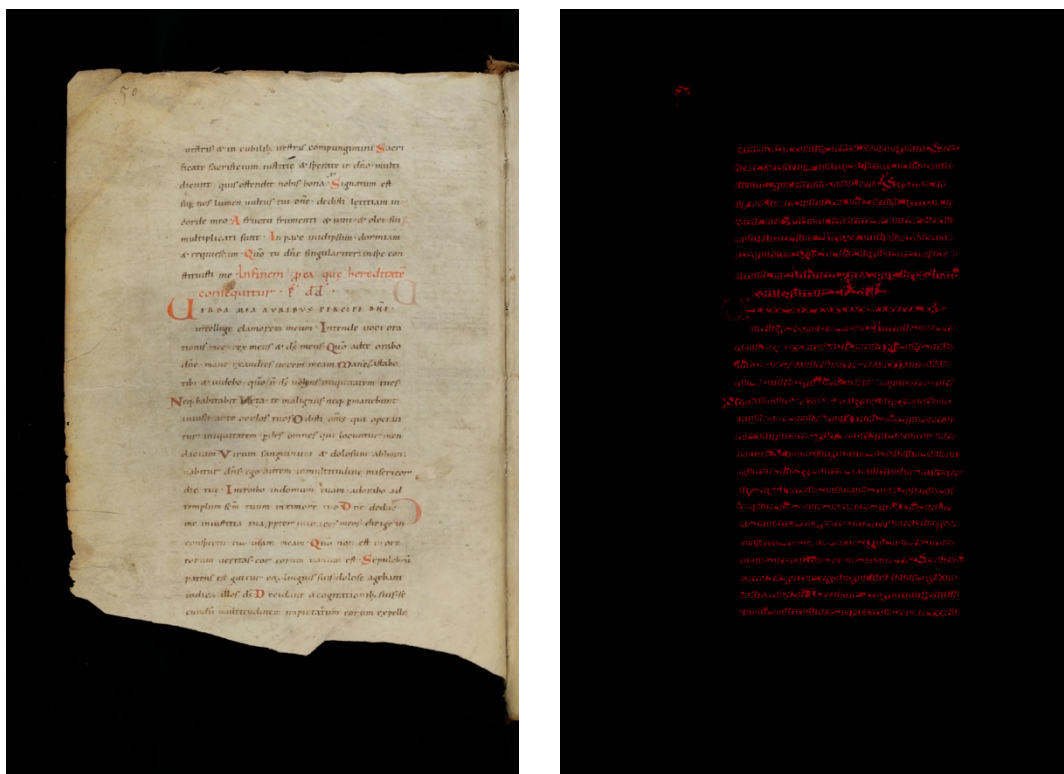 50
uestris & in cubilib; uestris compungimini Sacri
ficate sacrificium iustitie & sperate in dño multi
dicunt quis ostendit nobis bona Signatum est
sup nos lumen uultus tui dñe dedisti letitiam in
corde meo A fructu frumenti & uini & olei sui
multiplicati sunt In pace in idipsum dormiam
& requiescam Qño tu dñe singulariter in spe con
stituisti me Infinem pea que hereditatē
consequitur dd
UERBA MEA AURIBUS PERCIPE DÑE
intellege clamorem meum Intende uoci ora
tionis mee rex meus & ds meus Qño adte orabo
dñe mane exaudies uocem meam Mane astabo
tibi & uidebo qño ñ ds uolens iniquitatem tu es
Neq habitabit iuxta te malignus neq pmanebunt
iniusti ante oculos tuos Odisti oms qui operan
tur iniquitatem pdes omnes qui locuntur men
dacium Virum sanguinum & dolosum abhomi
nabitur dñs ego autem in multitudine misericor
die tue Introibo indomum tuam adorabo ad
templum scm tuum intimore tuo Dñe deduc
me iniustitia tua ppter inimicos meos dirige in
conspectu tuo uiam meam Qño non est in ore
eorum ueritas cor eorum uanum est Sepulchrū
patens est guttur eorum linguis suis dolose agebant
iudica illos ds Decidant a cogitationib; suis se
cundū multitudinem impietatum eorum expelle